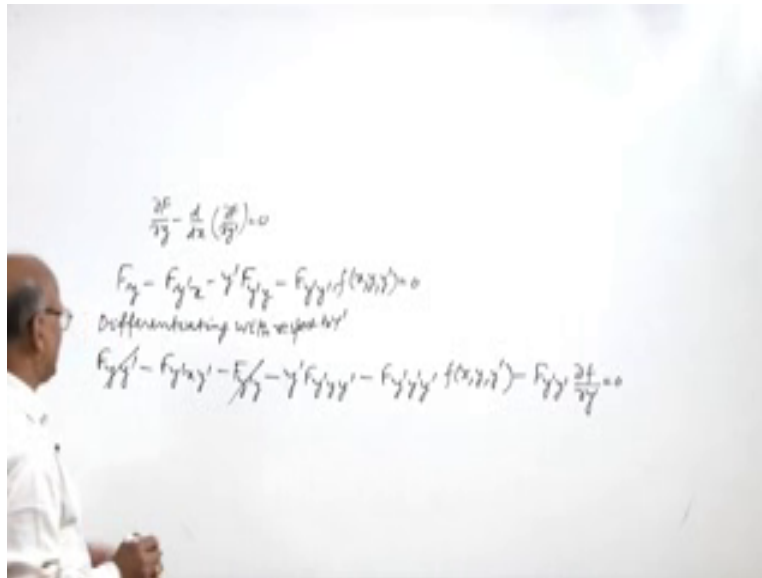 ∂F/∂y - d/dx (∂F/∂y') = 0
F_y - F_y'x - y' F_y'y - F_y'y' f(x,y,y') = 0
Differentiating with respect to y'
F_yy' - F_y'xy' - F_y'y - y' F_y'yy' - F_y'y'y' f(x,y,y') - F_y'y' ∂f/∂y' = 0